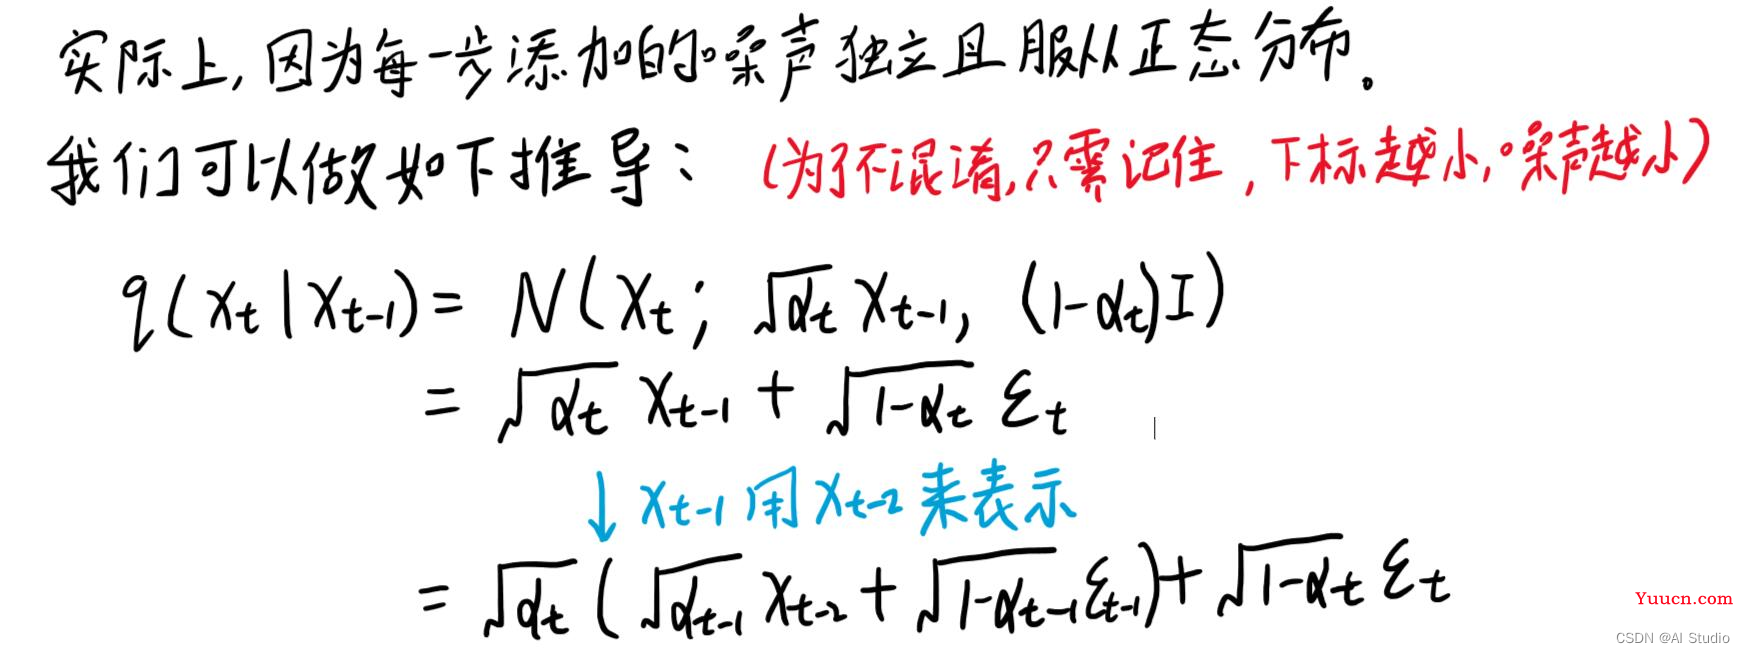 实际上,因为每一步添加的噪声独立且服从正态分布。
我们可以做如下推导: (为了不混淆,只需记住,下标越小,噪声越小)
q(xt|xt-1) = N(xt; √αt xt-1, (1-αt)I)
= √αt xt-1 + √1-αt εt
↓ xt-1 用 xt-2 来表示
= √αt (√αt-1 xt-2 + √1-αt-1 εt-1) + √1-αt εt
Yuucn.com
CSDN @AI Studio